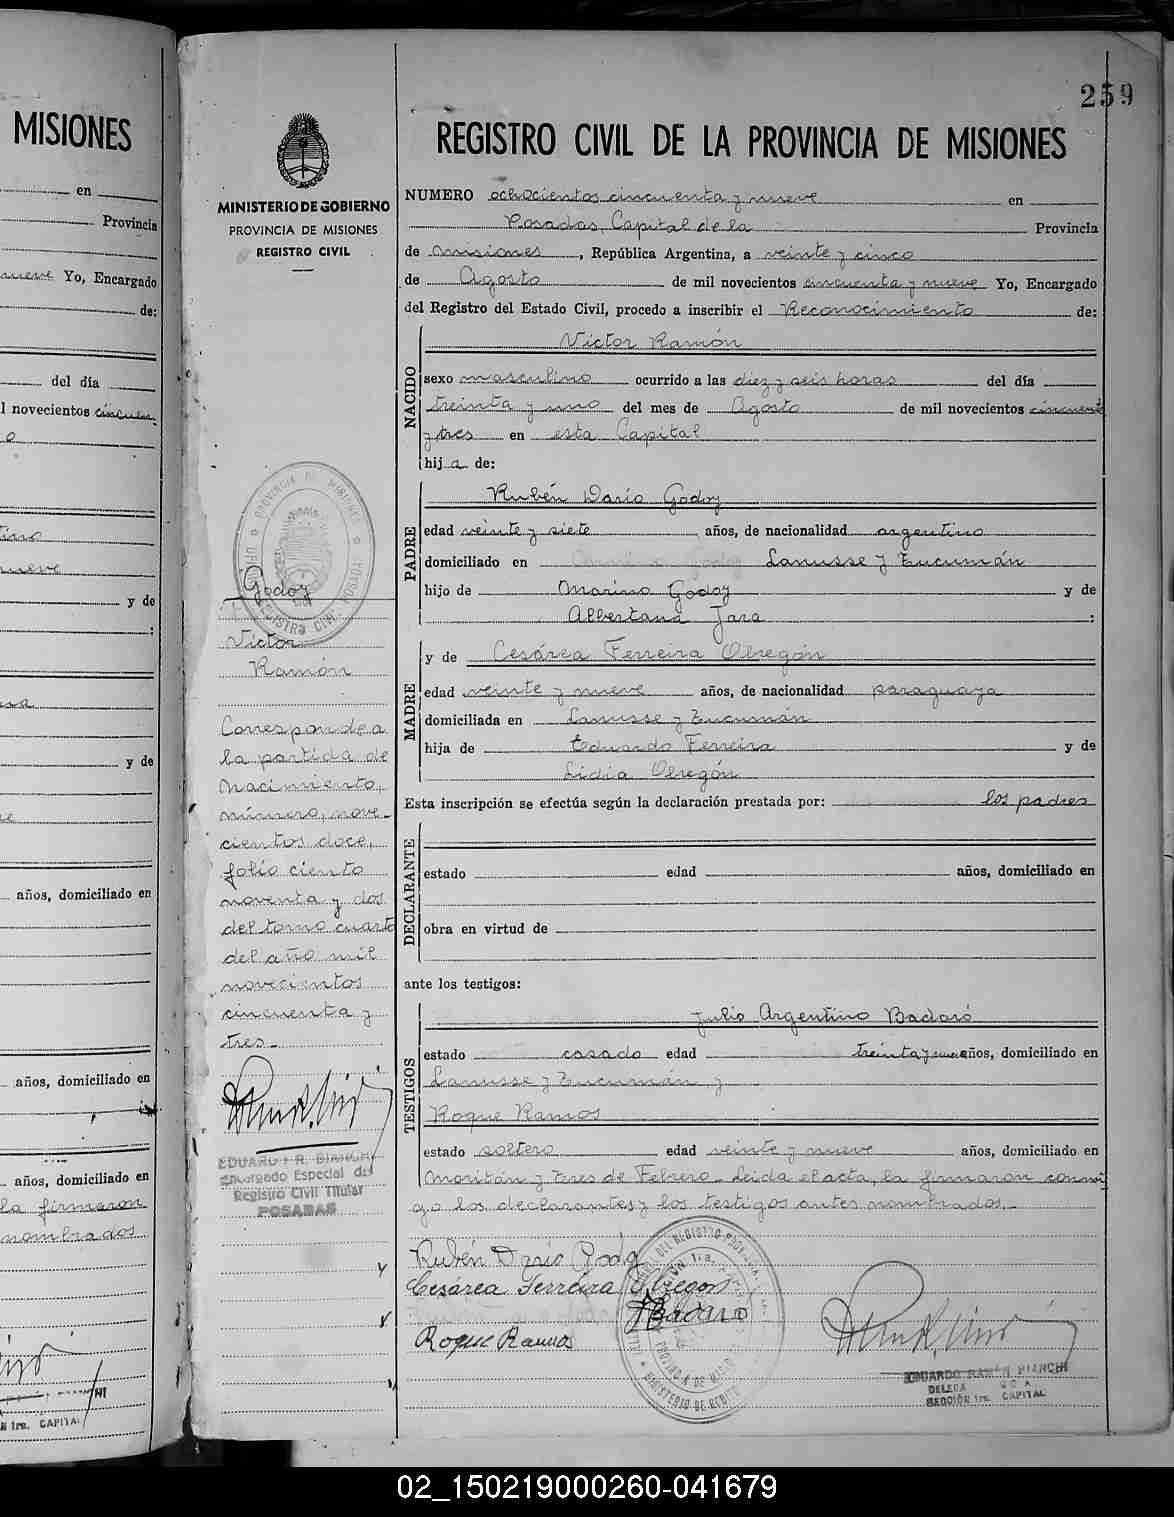 MISIONES
en
Provincia
nueve Yo, Encargado
de:
del día
l novecientos cincuen
o
nueve
y de
:
y de
años, domiciliado en
años, domiciliado en
años, domiciliado en
la firmaron
nombrados
CAPITAL
259
MINISTERIO DE GOBIERNO
PROVINCIA DE MISIONES
REGISTRO CIVIL
Godoy
Víctor
Ramón
Corresponde a
la partida de
Nacimiento,
número, nove-
cientos doce,
folio ciento
noventa y dos
del tomo cuarto
del año mil
novecientos
cincuenta y
tres.-
EDUARDO R. BIANCHI
Encargado Especial del
Registro Civil Titular
POSADAS
REGISTRO CIVIL DE LA PROVINCIA DE MISIONES
NUMERO ochocientos cincuenta y nueve en
Posadas, Capital de la Provincia
de Misiones, República Argentina, a veinte y cinco
de Agosto de mil novecientos cincuenta y nueve Yo, Encargado
del Registro del Estado Civil, procedo a inscribir el Reconocimiento de:
NACIDO
Víctor Ramón
sexo masculino ocurrido a las diez y seis horas del día
treinta y uno del mes de Agosto de mil novecientos cincuenta
y tres en esta Capital
hij a de:
PADRE
Rubén Darío Godoy
edad veinte y siete años, de nacionalidad argentino
domiciliado en Lanusse y Tucumán
hijo de Marino Godoy y de
Albertana Jara :
MADRE
y de Cesárea Ferreira Obregón
edad veinte y nueve años, de nacionalidad paraguaya
domiciliada en Lanusse y Tucumán
hija de Eduardo Ferreira y de
Lidia Obregón
Esta inscripción se efectúa según la declaración prestada por: los padres
DECLARANTE
estado edad años, domiciliado en
obra en virtud de
ante los testigos:
TESTIGOS
Julio Argentino Badaró
estado casado edad treinta y nueve años, domiciliado en
Lanusse y Tucumán y
Roque Ramos
estado soltero edad veinte y nueve años, domiciliado en
y Tres de Febrero. Leída el acta, la firmaron conmi
go los declarantes y los testigos antes nombrados.-
Rubén Darío Godoy
Cesárea Ferreira Obregon
Badaro
Roque Ramos
EDUARDO RAMON BIANCHI
SECCIÓN 1ra. CAPITAL
02_150219000260-041679